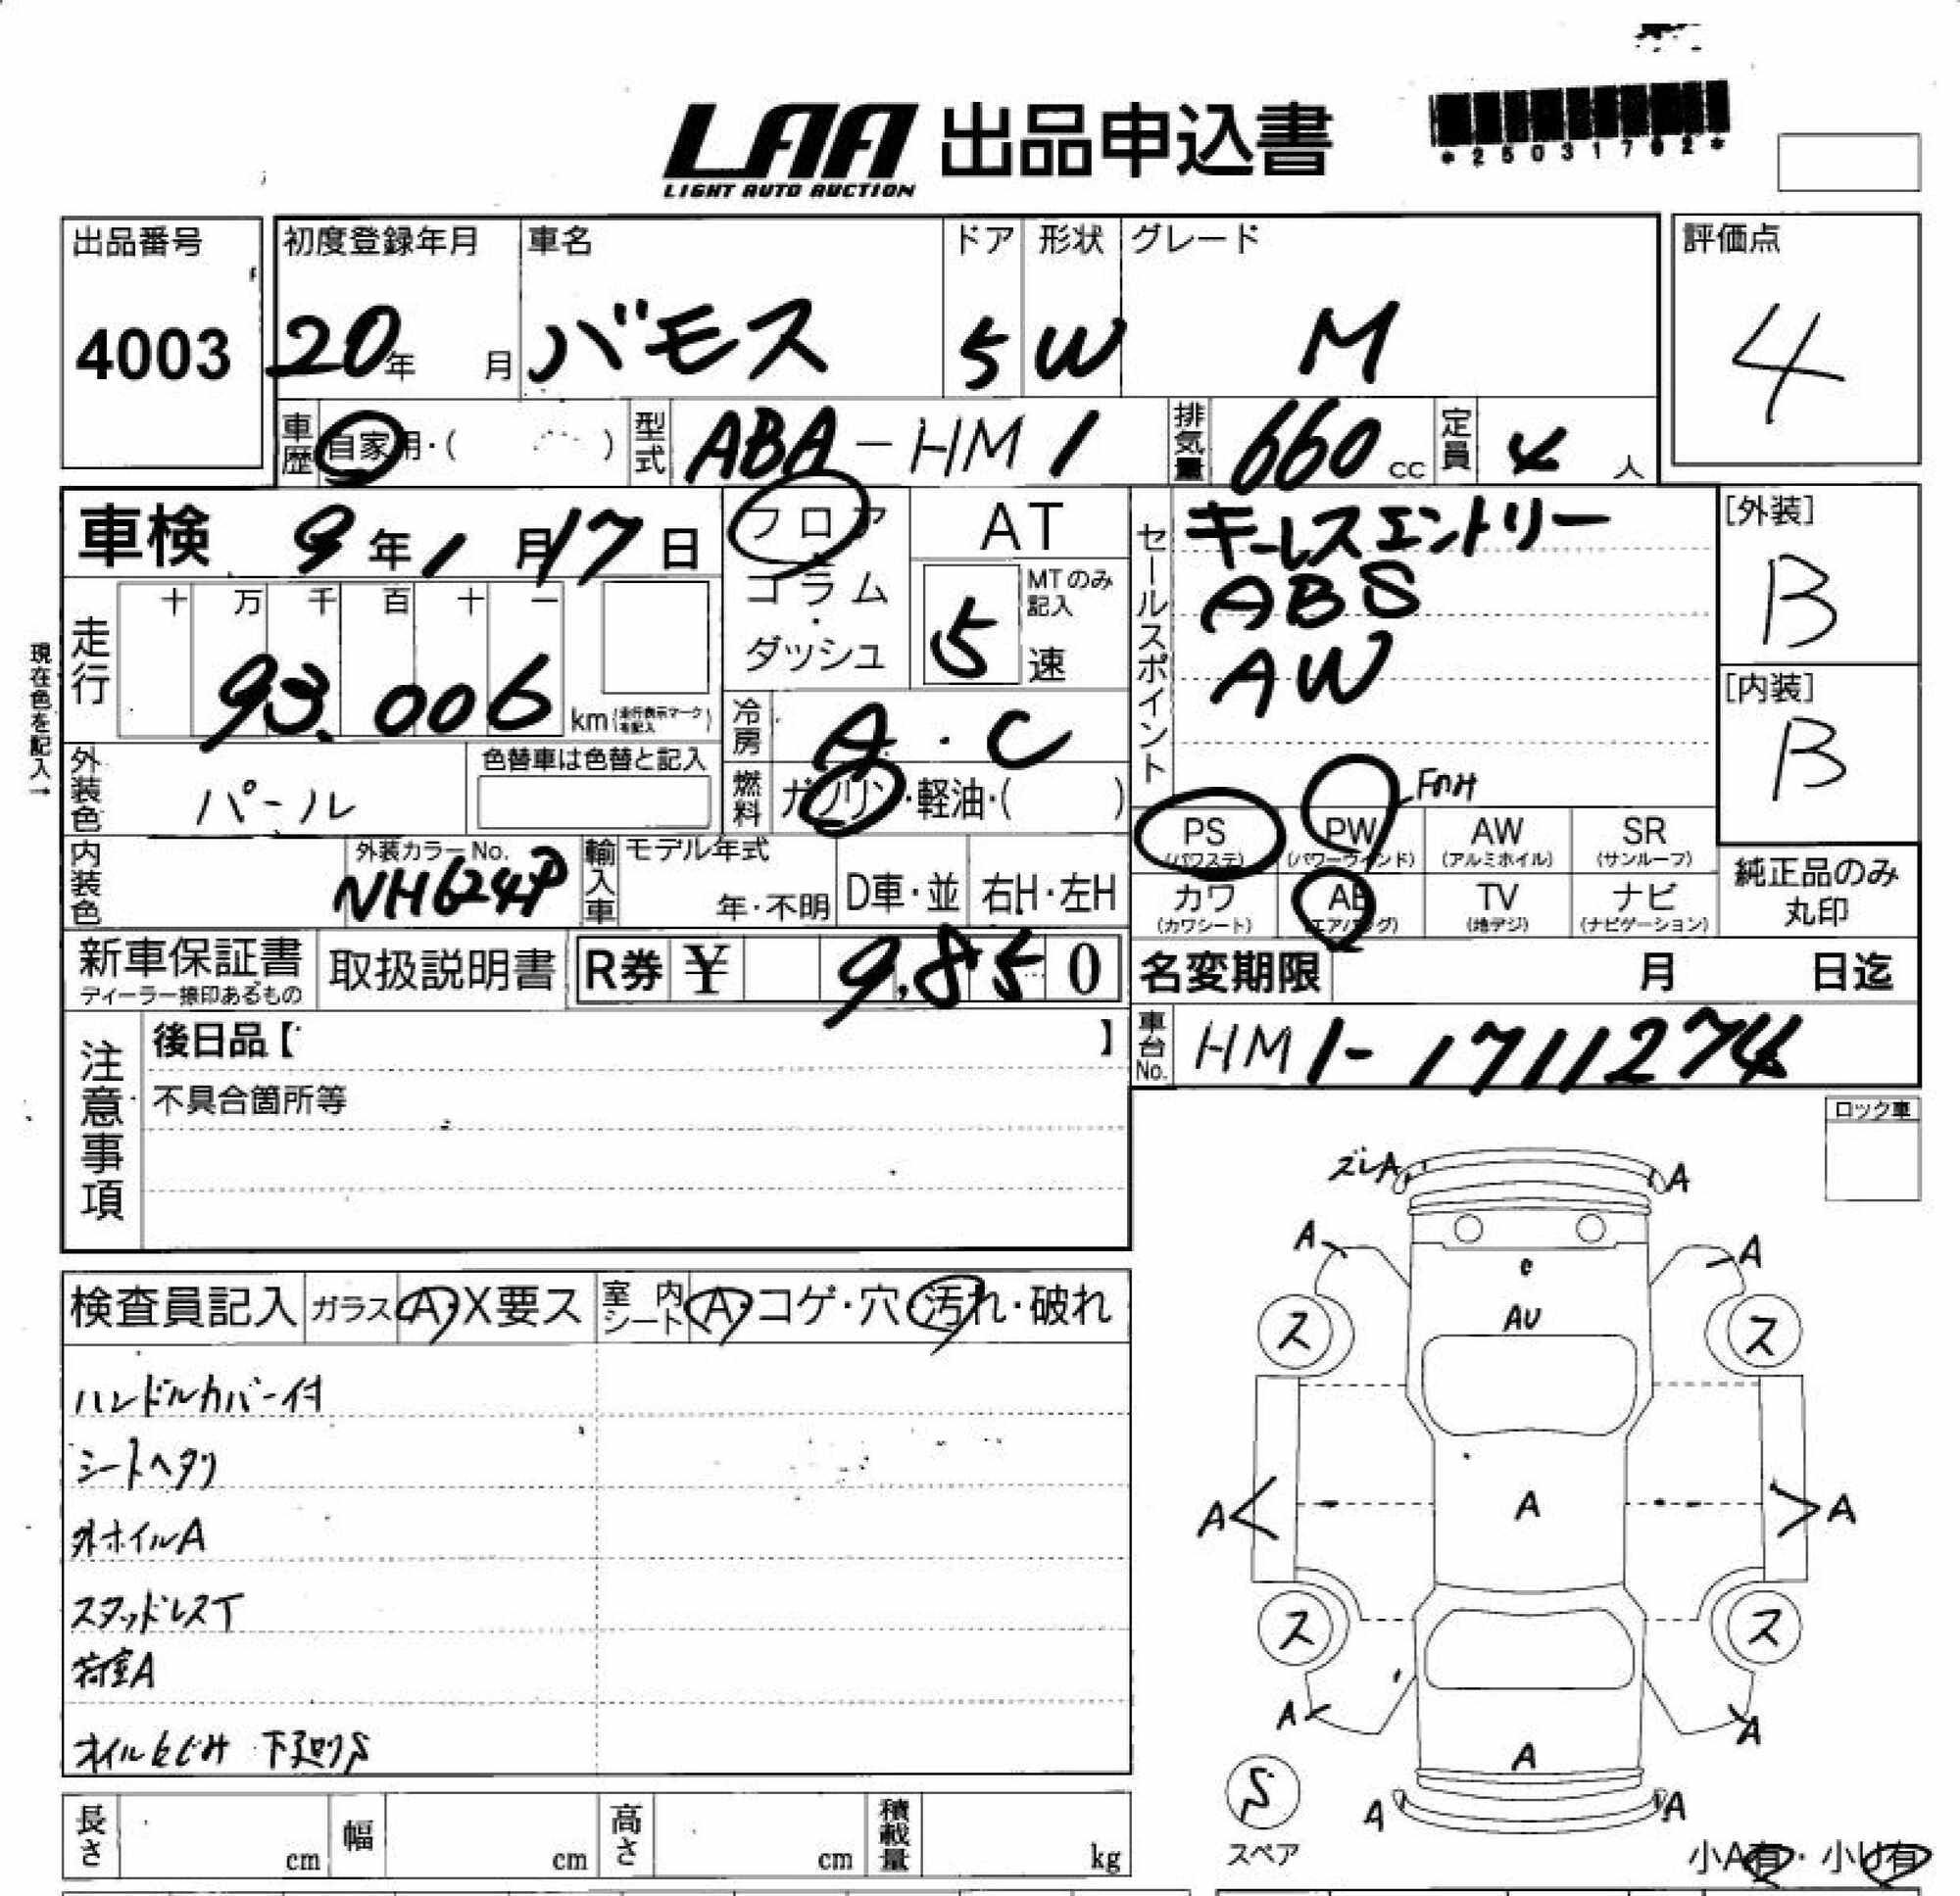 LAA 出品申込書
LIGHT AUTO AUCTION
*25031762*
出品番号
4003
初度登録年月
20年 月
車名
バモス
ドア
5
形状
W
グレード
M
評価点
4
車歴 自家用・( )
型式 ABA-HM1
排気量 660cc
定員 4人
車検 9年1月17日
フロア・コラム・ダッシュ
AT
5 速
MTのみ記入
セールスポイント
キーレスエントリー
ABS
AW
[外装]
B
[内装]
B
現在色を記入→
走行
十 万 千 百 十 一
93.006 km(走行表示マークを記入)
冷房 A・C
燃料 ガソリン・軽油・( )
外装色 パール
色替車は色替と記入
内装色
外装カラーNo.
NH624P
輸入車
モデル年式
年・不明
D車・並
右H・左H
PS
(パワステ)
PW
(パワーウィンド)
AW
(アルミホイル)
SR
(サンルーフ)
カワ
(カワシート)
AB
(エアバッグ)
TV
(地デジ)
ナビ
(ナビゲーション)
純正品のみ
丸印
新車保証書
ディーラー捺印あるもの
取扱説明書
R券 ¥ 9,850
名変期限 月 日迄
注意事項
後日品【 】
不具合箇所等
車台No. HM1-1711274
ロック車
検査員記入
ガラス A・X要ス
室内シート A・コゲ・穴・汚れ・破れ
ハンドルカバー付
シートヘタリ
外ホイルA
スタッドレスT
荷室A
オイルにじみ 下廻りS
ズレA
A
A
A
C
AU
ス
ス
A
A
A
ス
ス
A
A
A
S
スペア
A
A
小A有・小U有
長さ cm
幅 cm
高さ cm
積載量 kg